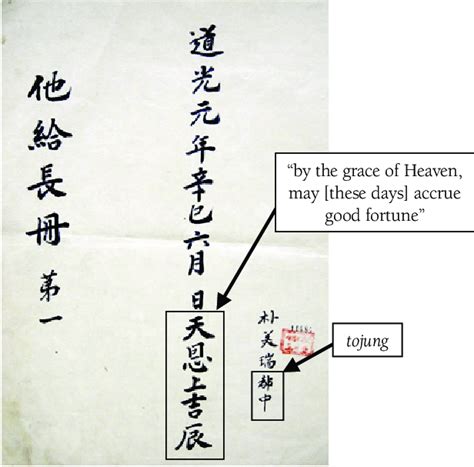 他給長冊 第一
道光元年辛巳六月 日天恩上吉辰
朴美瑞都中
“by the grace of Heaven,
may [these days] accrue
good fortune”
tojung